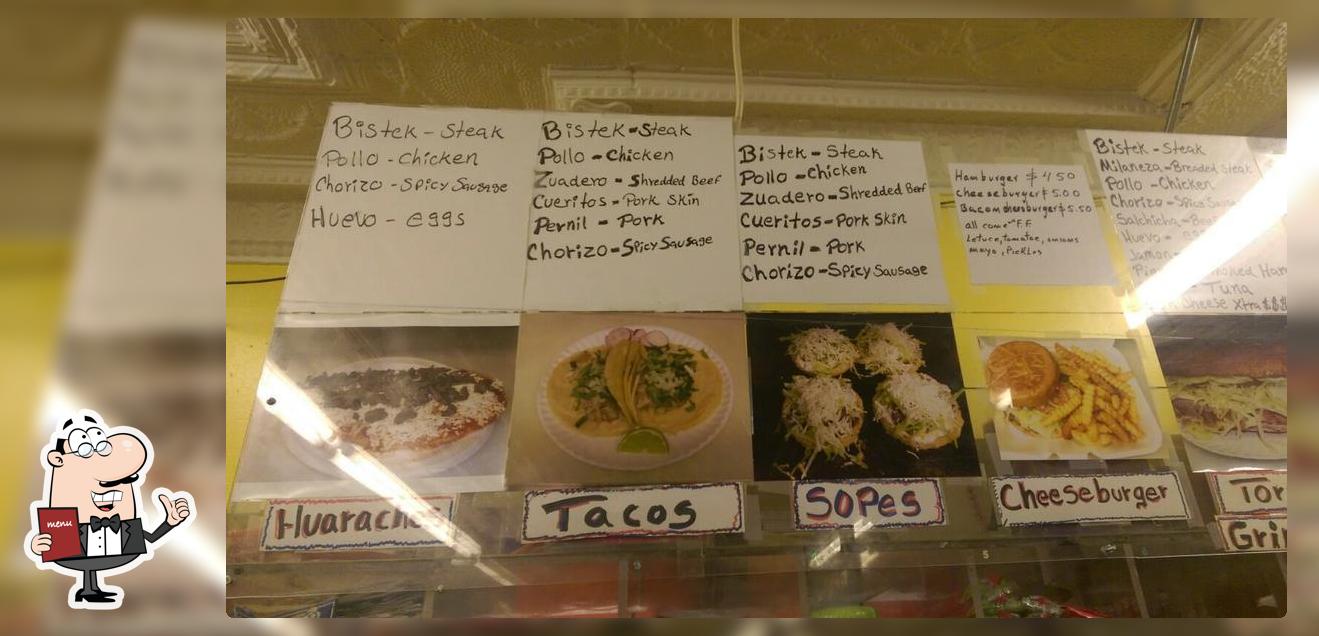 Bistek - Steak
Pollo - chicken
Chorizo - Spicy Sausage
Huevo - eggs
Bistek - Steak
Pollo - Chicken
Zuadero - Shredded Beef
Cueritos - Pork Skin
Pernil - Pork
Chorizo - Spicy Sausage
Bistek - Steak
Pollo - Chicken
Zuadero - Shredded Beef
Cueritos - Pork Skin
Pernil - Pork
Chorizo - Spicy Sausage
Hamburger $4.50
cheeseburger $5.00
$5.50
all come F.F
Letuce, tomatoe, onions
mayo, Pickles
Bistek - Steak
Milaneza - Breaded Steak
Pollo - Chicken
Chorizo - Spice
Salchicha -
Huevo - eggs
Jamon -
Smoked Ham
- Tuna
Cheese Xtra
Huarache
Tacos
Sopes
Cheeseburger
Tor
Gri
menu